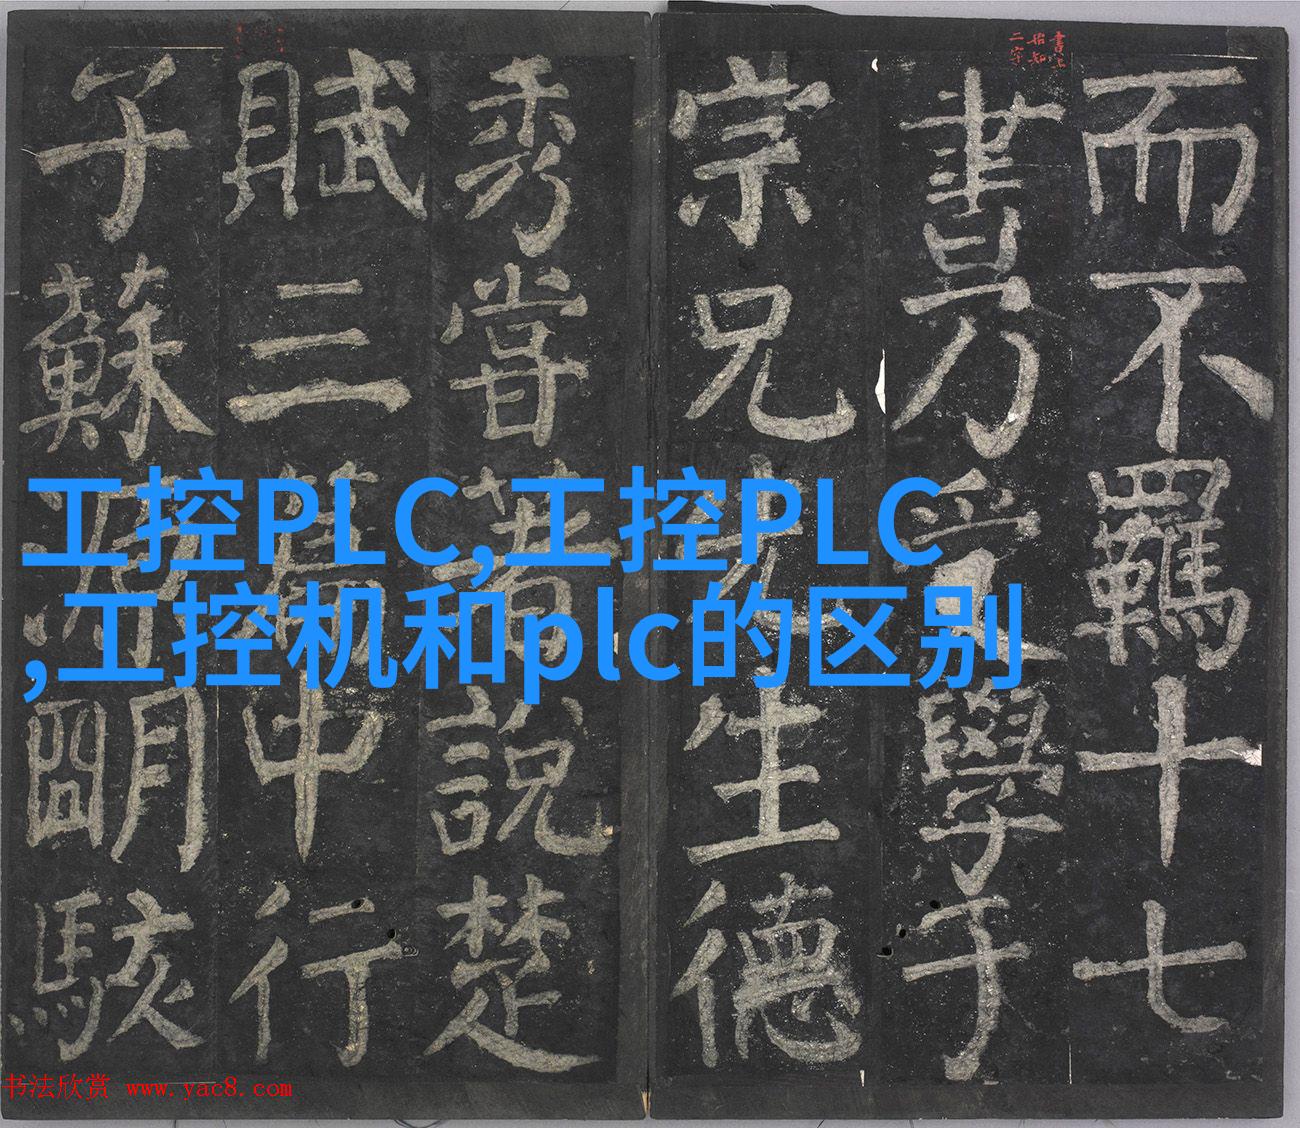 而不羈十七
書乃受學于
宗兄先生德
秀嘗著說楚
賦三篇中行
子蘇源明駭
工控PLC,工控PLC
,工控机和plc的区别
书法欣赏 www.yac8.com